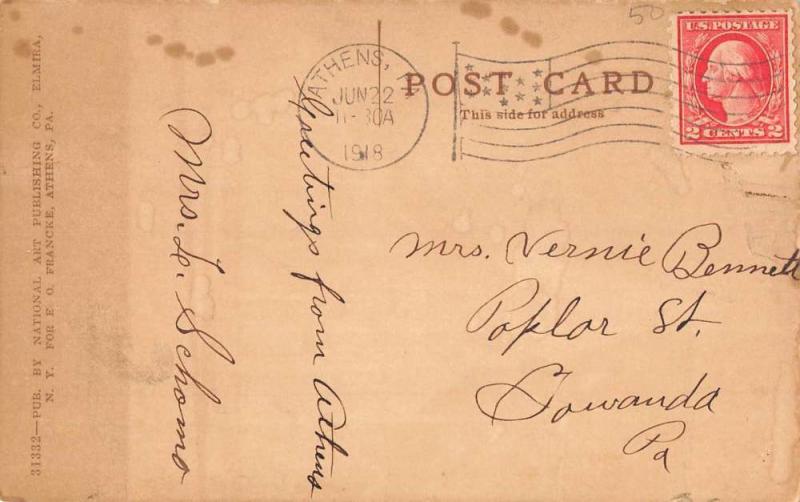 50
U.S. POSTAGE
2 CENTS 2
ATHENS,
JUN 22
11-30A
1918
POST CARD
This side for address
Mrs. Vernie Bennett
Poplar St.
Towanda
Pa
Greetings from Athens
Mrs. L. Schomo
31332—PUB. BY NATIONAL ART PUBLISHING CO., ELMIRA,
N. Y. FOR E. O. FRANCKE, ATHENS, PA.